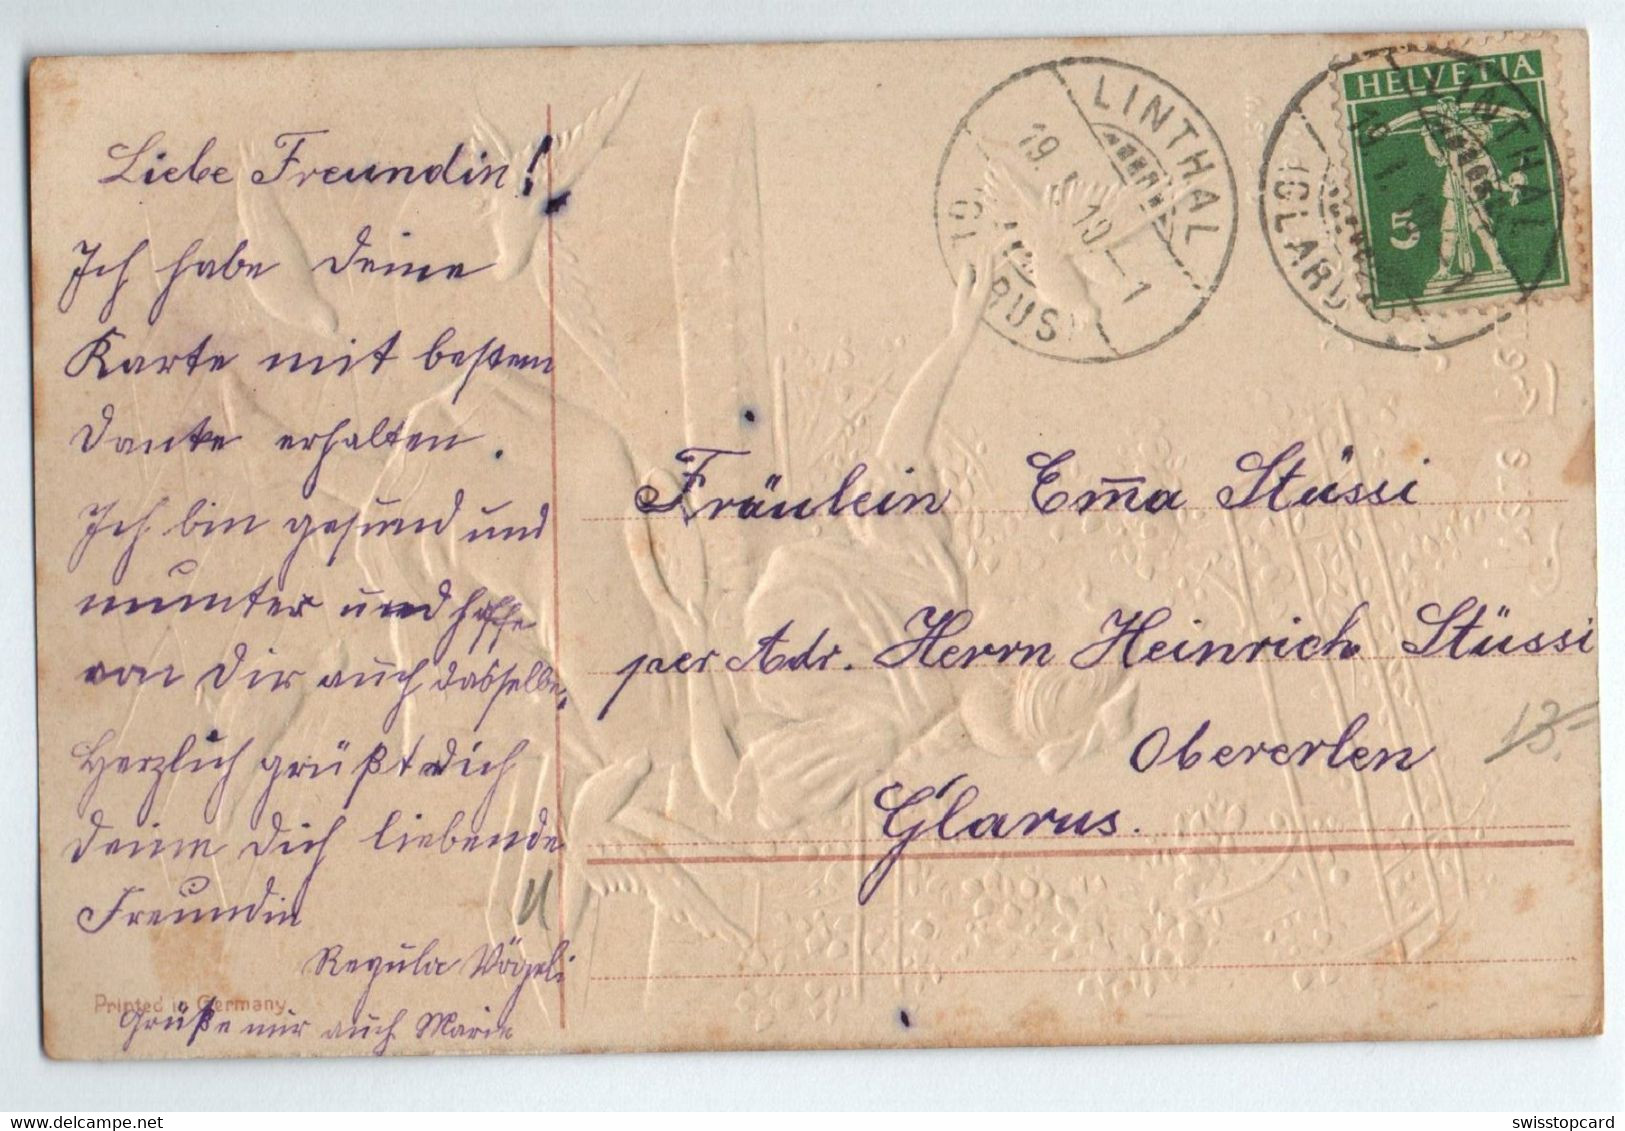 Liebe Freundin!
Ich habe deine
Karte mit bestem
Danke erhalten.
Ich bin gesund und
munter und hoffe
von Dir auch dasselbe.
Herzlich grüßt dich
deine dich liebende
Freundin
Regula Vögeli
Printed in Germany
Grüße mir auch Marie
LINTHAL
19. I. 19 – 1
(GLARUS)
LINTHAL
19. I.
(GLARUS)
HELVETIA
5
Fräulein Em̄a Stüssi
per Adr. Herrn Heinrich Stüssi
Obererlen
Glarus.
13.-
swisstopcard